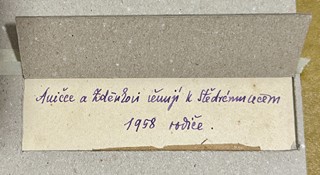 Aničce a Zdeňkovi věnují k Štědrému večeru
1958 rodiče.